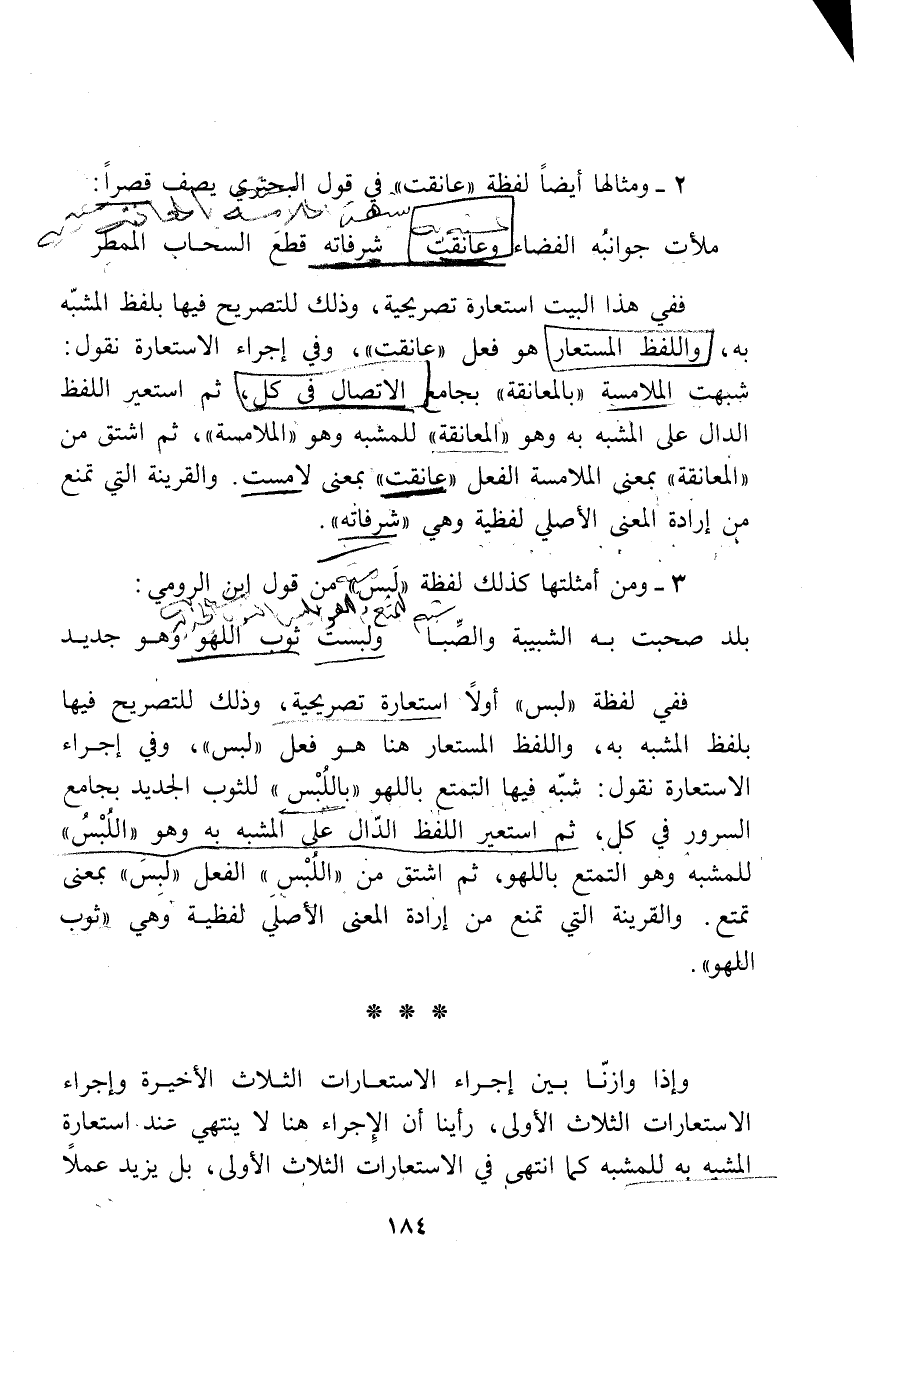 ٢ ـ ومثالها أيضاً لفظة «عانقت» في قول البحتري يصف قصراً:
ملأت جوانبُه الفضاء وعانقتْ شرفاته قطعَ السحاب الممطر
ففي هذا البيت استعارة تصريحية، وذلك للتصريح فيها بلفظ المشبّه
به، واللفظ المستعار هو فعل «عانقت»، وفي إجراء الاستعارة نقول:
شبهت الملامسة «بالمعانقة» بجامع الاتصال في كل، ثم استعير اللفظ
الدال على المشبه به وهو «المعانقة» للمشبه وهو «الملامسة»، ثم اشتق من
«المعانقة» بمعنى الملامسة الفعل «عانقت» بمعنى لامست. والقرينة التي تمنع
من إرادة المعنى الأصلي لفظية وهي «شرفاته».
٣ ـ ومن أمثلتها كذلك لفظة «لَبس» من قول ابن الرومي:
بلد صحبت به الشبيبة والصِّبا ولبست ثوب اللهو وهو جديد
ففي لفظة «لبس» أولاً استعارة تصريحية، وذلك للتصريح فيها
بلفظ المشبه به، واللفظ المستعار هنا هو فعل «لبس»، وفي إجراء
الاستعارة نقول: شبّه فيها التمتع باللهو «باللُبْس» للثوب الجديد بجامع
السرور في كل، ثم استعير اللفظ الدّال على المشبه به وهو «اللُبْسُ»
للمشبه وهو التمتع باللهو، ثم اشتق من «اللُبْس» الفعل «لبسَ» بمعنى
تمتع. والقرينة التي تمنع من إرادة المعنى الأصلي لفظية وهي «ثوب
اللهو».
* * *
وإذا وازنّا بين إجراء الاستعارات الثلاث الأخيرة وإجراء
الاستعارات الثلاث الأولى، رأينا أن الإجراء هنا لا ينتهي عند استعارة
المشبه به للمشبه كما انتهى في الاستعارات الثلاث الأولى، بل يزيد عملاً
١٨٤